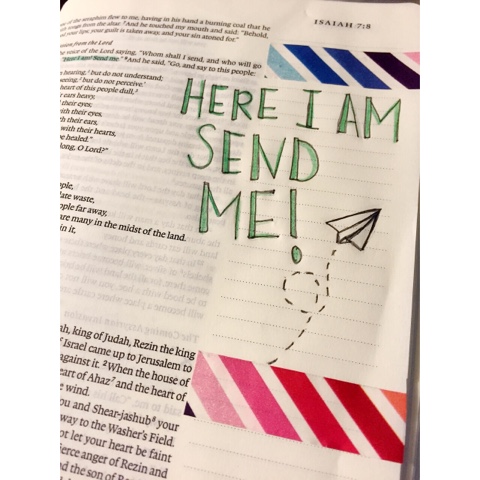 ISAIAH 7:8
of the seraphim flew to me, having in his hand a burning coal that he
tongs from the altar. ⁷And he touched my mouth and said: "Behold,
your lips; your guilt is taken away, and your sin atoned for."
from the Lord
the voice of the Lord saying, "Whom shall I send, and who will go
"Here I am! Send me." ⁹And he said, "Go, and say to this people:
hearing, but do not understand;
seeing, but do not perceive.'
heart of this people dull,
ears heavy,
their eyes;
with their eyes,
with their ears,
with their hearts,
be healed."
long, O Lord?"
HERE I AM
SEND
ME!
people,
waste,
people far away,
are many in the midst of the land.
in it,
king of Judah, Rezin the king
of Israel came up to Jerusalem to
against it. ²When the house of
heart of Ahaz and the heart of
wind.
you and Shear-jashub your
way to the Washer's Field.
not let your heart be faint
fierce anger of Rezin and
and the son of